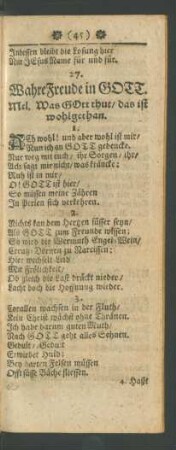 (45)
Indessen bleibt die Losung hier
Am JEsus Name für und für.
27.
Wahre Freude in GOTT.
Mel. Was GOtt thut / das ist
wohlgethan.
1.
ACh wohl! und aber wohl ist mir /
Nun ich an GOTT gedencke.
Nur weg mit euch / ihr Sorgen / ihr /
Acht sagt mir nicht / was kräncke;
Ruh ist in mir /
O! GOTT ist hier /
Es müssen meine Zähren
In Perlen sich verkehren.
2.
Nichts kan dem Hertzen süsser seyn /
Als GOTT zum Freunde wissen;
Es wird die Wermuth Engel-Wein /
Dornen zu Narcissen;
Hier wechselt Leid
Mit Frölichkeit /
Ob gleich die Last drückt nieder /
Lacht doch die Hoffnung wieder.
3.
Corallen wachsen in der Fluth /
Kein Christ wächst ohne Thränen.
Ich habe darum guten Muth /
Nach GOTT geht alles Sehnen.
Gedult / Gedult
Huld;
Bey harten Felsen müssen
Offt süsse Bäche fliessen.
4. Haßt